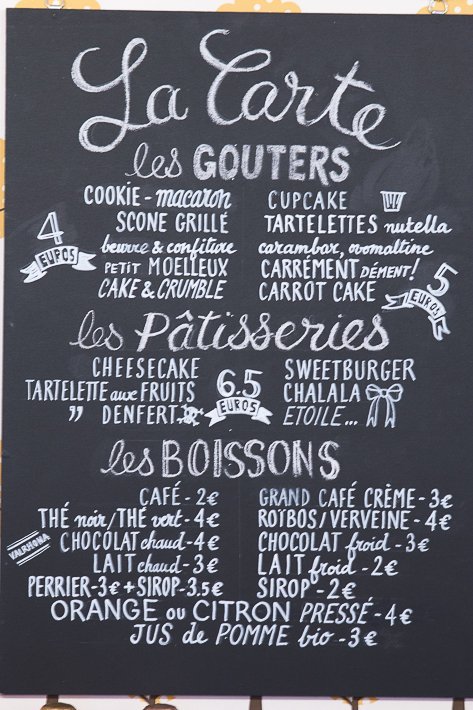 La Carte
les GOUTERS
4 EUROS
COOKIE - macaron
SCONE GRILLÉ
beurre & confiture
PETIT MOELLEUX
CAKE & CRUMBLE
CUPCAKE
TARTELETTES nutella
carambar, ovomaltine
CARRÉMENT DÉMENT!
CARROT CAKE
5 EUROS
les Pâtisseries
CHEESECAKE
TARTELETTE aux FRUITS
" DENFERT
6.5 EUROS
SWEETBURGER
CHALALA
ETOILE...
les BOISSONS
CAFÉ - 2€
GRAND CAFÉ CRÈME - 3€
THÉ noir/THÉ vert - 4€
ROÏBOS/VERVEINE - 4€
VALRHONA
CHOCOLAT chaud - 4€
CHOCOLAT froid - 3€
LAIT chaud - 3€
LAIT froid - 2€
PERRIER - 3€ + SIROP - 3.5€
SIROP - 2€
ORANGE ou CITRON PRESSÉ - 4€
JUS de POMME bio - 3€